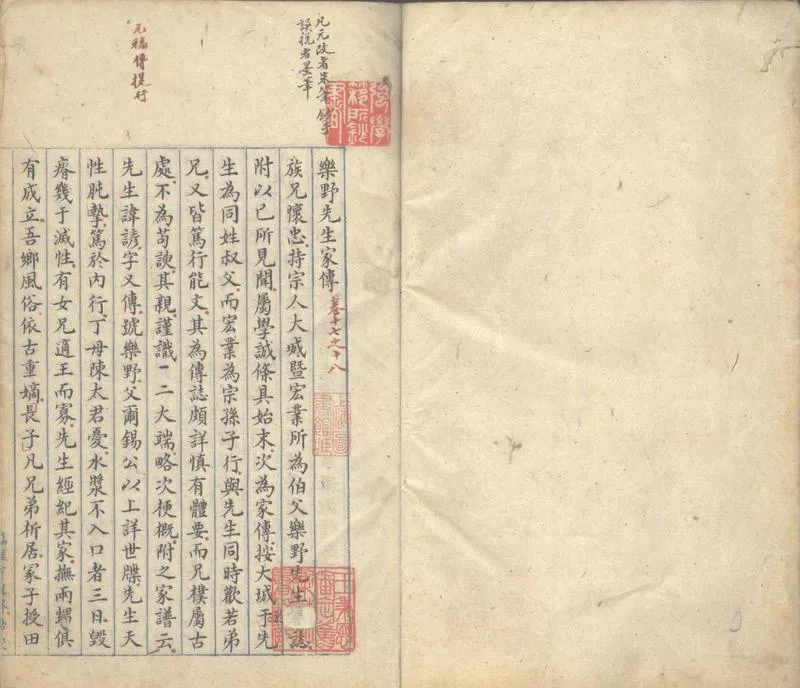 凡元改者朱筆
誤梲者墨筆
元稿傳提行
樂野先生家傳 卷十七之十八
族兄懷忠持宗人大城暨宏業所為伯父樂野先生誌
附以已所見聞屬學誠條具始末次為家傳按大城于先
生為同姓叔父而宏業為宗孫子行與先生同時歡若弟
兄又皆篤行能文其為傳誌頗詳慎有體要而兄樸屬古
處不為苟諛其親謹識一二大端略次梗概附之家譜云
先生諱諺字又傳號樂野父爾錫公以上詳世牒先生天
性肫摯篤於內行丁母陳太君憂水漿不入口者三日毀
瘠幾于滅性有女兄適王而寡先生經紀其家撫兩甥俱
有成立吾鄉風俗依古重嫡長子凡兄弟析居冢子授田